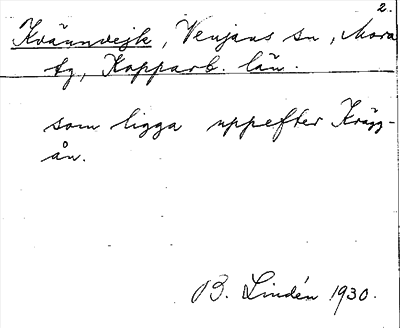 2.
Kvännvejk, Venjans sn, Mora
tg, Kopparb. län.
som ligga uppefter Krägg-
ån.
B. Lindén 1930.